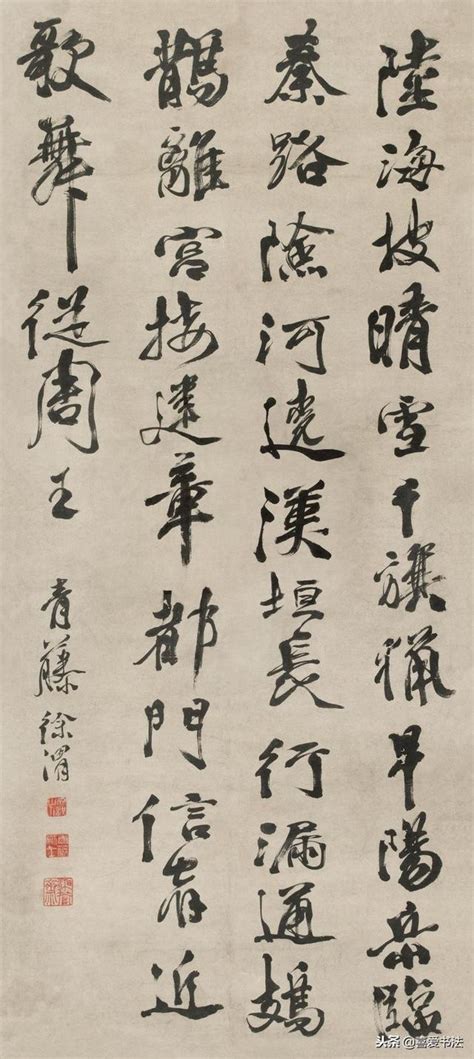 陸海披晴雪千旗獵早陽岳臨
秦路險河遶漢垣長行漏通鳷
鵲離宮接建章都門信宿近
歌舞從周王
青藤徐渭
头条 @喜爱书法